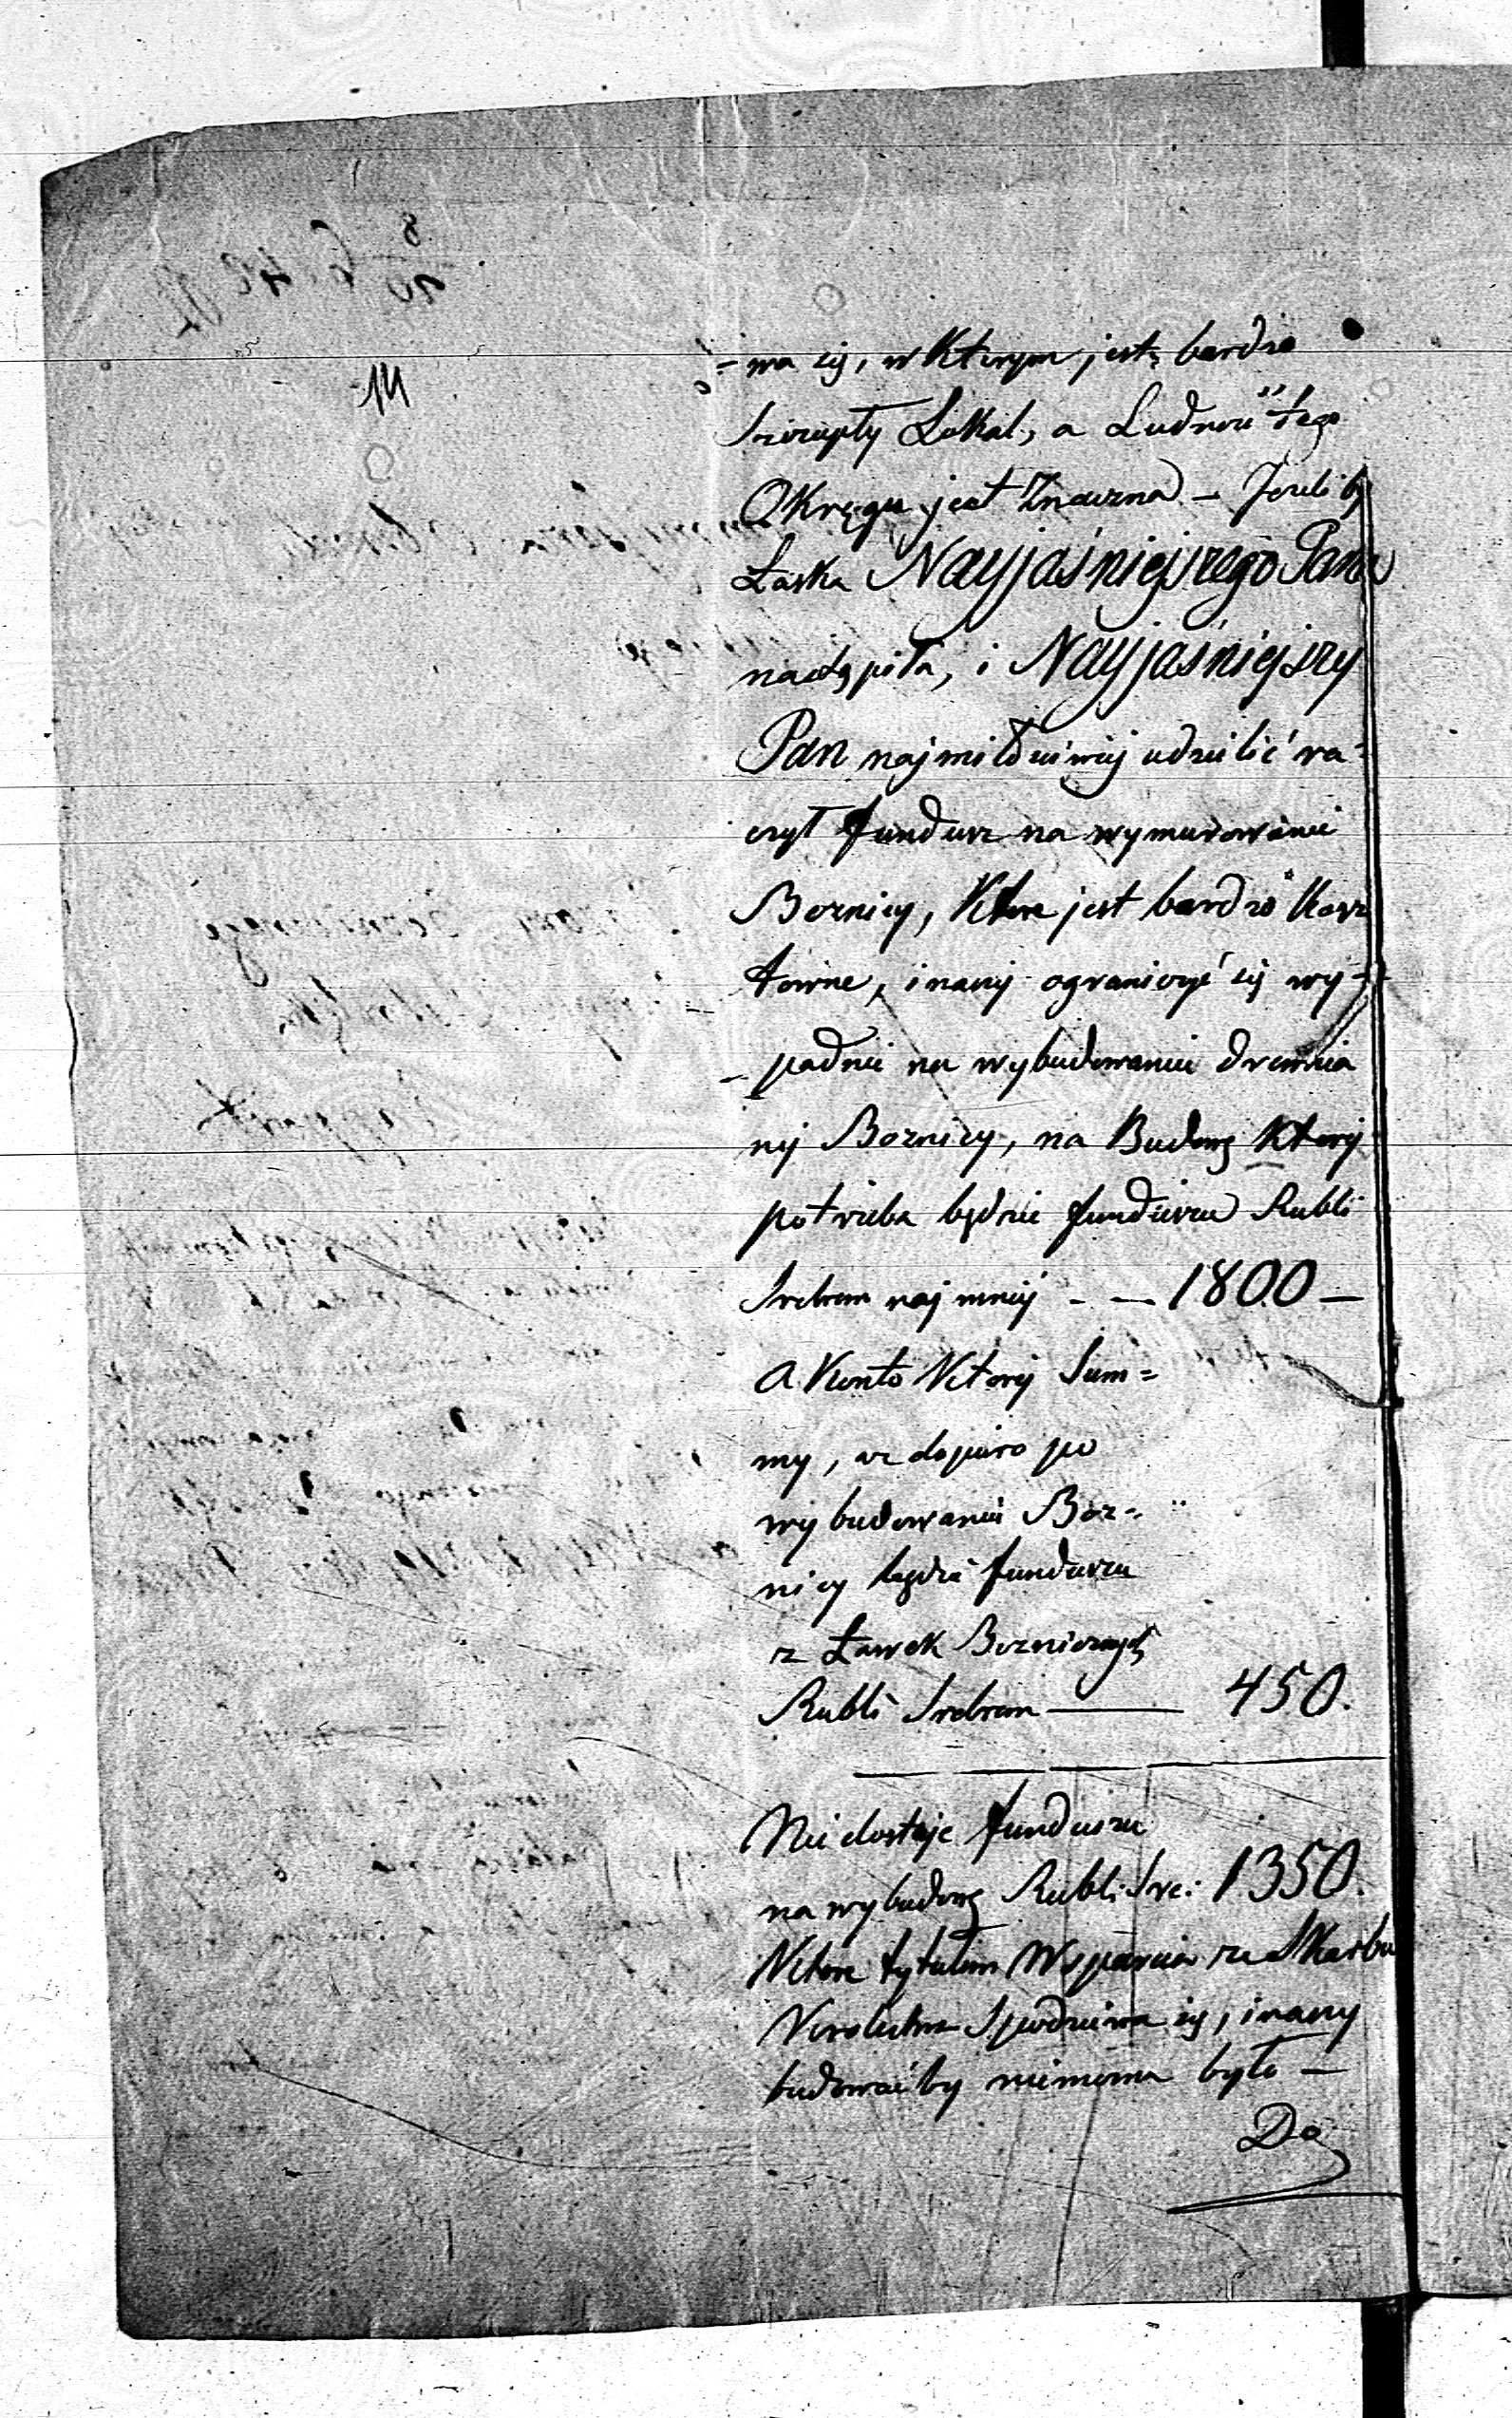 = wa się, w Którym jest bardzo
szczupły Lokal, a Ludność tego
Okręgu jest Znaczna – Jeźeli by
Łaska Nayjaśniejszego Pana
nastąpiła, i Nayjaśniejszy
Pan najmiłościwiej udzielić ra=
czył fundusz na wymurowanie
Bożnicy, Które jest bardzo Kosz
towne, inaczej ograniczyć się wy-
- padnie na wybudowanie drewnia
nej Bożnicy, na Budowę Której
potrzeba będzie funduszu Rubli
Srebrem najmniej - — 1800 —
A Konto Której Sum=
my, że dopiero po
wybudowaniu Boż=
nicy będzie funduszu
z Ławek Bożniczych
Rubli Srebrem — 450.
Niedostaje funduszu
na wybudowę Rubli Sre: 1350.
Które tytułem Wsparcia ze Skarbu
Królestwa Spodziewa się, inaczej
budować by niemożna było –
Do